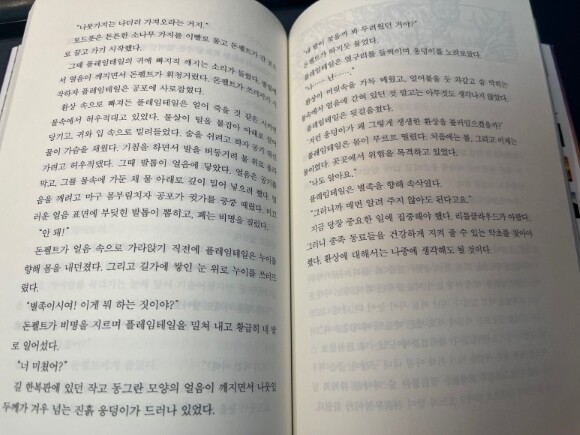 "나뭇가지는 나더러 가져오라는 거지."
포드풋은 튼튼한 소나무 가지를 이빨로 물고 돈펠트가 간
로 끌고 가기 시작했다.
그때 플레임테일의 귀에 빠지직 깨지는 소리가 들렸다.
서 얼음이 깨지면서 돈펠트가 휘청거렸다. 돈펠트가 쓰러지기 시
작하자 플레임테일은 공포에 사로잡혔다.
환상 속으로 빠져든 플레임테일은 얼어 죽을 것 같은
물속에서 허우적대고 있었다. 물살이 털을 붙잡아 아래로 잡아
당기고, 귀와 입 속으로 밀려들었다. 숨을 쉬려고 하자 공기
물이 가슴을 채웠다. 기침을 하면서 발을 버둥거려 물 위로 올라
가려고 허우적댔다. 그때 발톱이 얼음에 닿았다. 얼음은 공기를
막고, 그를 물속에 가둔 채 물 아래로 깊이 밀어 넣으려 했다.
음을 깨려고 마구 몸부림치자 공포가 귓가를 쿵쿵 때렸다.
러운 얼음 표면에 부딪힌 발톱이 뽑히고, 폐는 비명을 질렀다.
"안 돼!"
돈펠트가 얼음 속으로 가라앉기 직전에 플레임테일은 누이를
향해 몸을 내던졌다. 그리고 길가에 쌓인 눈 위로 누이를 쓰러뜨
렸다.
"별족이시여! 이게 뭐 하는 짓이야?"
돈펠트가 비명을 지르며 플레임테일을 밀쳐 내고 황급히 네 발
로 일어섰다.
"너 미쳤어?"
길 한복판에 있던 작고 동그란 모양의 얼음이 깨지면서 나뭇잎
두께가 겨우 넘는 진흙 웅덩이가 드러나 있었다.
"내 발이 젖을까 봐 두려웠던 거야?"
돈펠트가 하지못 물었다.
플레임테일은 옆구리를 들썩이며 웅덩이를 노려보았다.
"나…… 난……."
환상이 머릿속을 가득 메웠고, 얼어붙을 듯 차갑고 숨 막히는
물속에서 얼음에 갇혀 있던 것 말고는 아무것도 생각나지 않았다.
플레임테일은 뒷걸음쳤다.
'저런 웅덩이가 왜 그렇게 생생한 환상을 불러일으켰을까?'
플레임테일은 몸이 부르르 떨렸다. 처음에는 불, 그리고 이제는
물이었다. 곳곳에서 위험을 목격하고 있었다.
"나도 알아요."
플레임테일은 별족을 향해 속삭였다.
"그러니까 매번 알려 주지 않아도 된다고요."
지금 당장 중요한 일에 집중해야 했다. 리틀클라우드가 아팠다.
그러니 종족 동료들을 건강하게 지켜 줄 수 있는 약초를 찾아야
했다. 환상에 대해서는 나중에 생각해도 될 것이다.